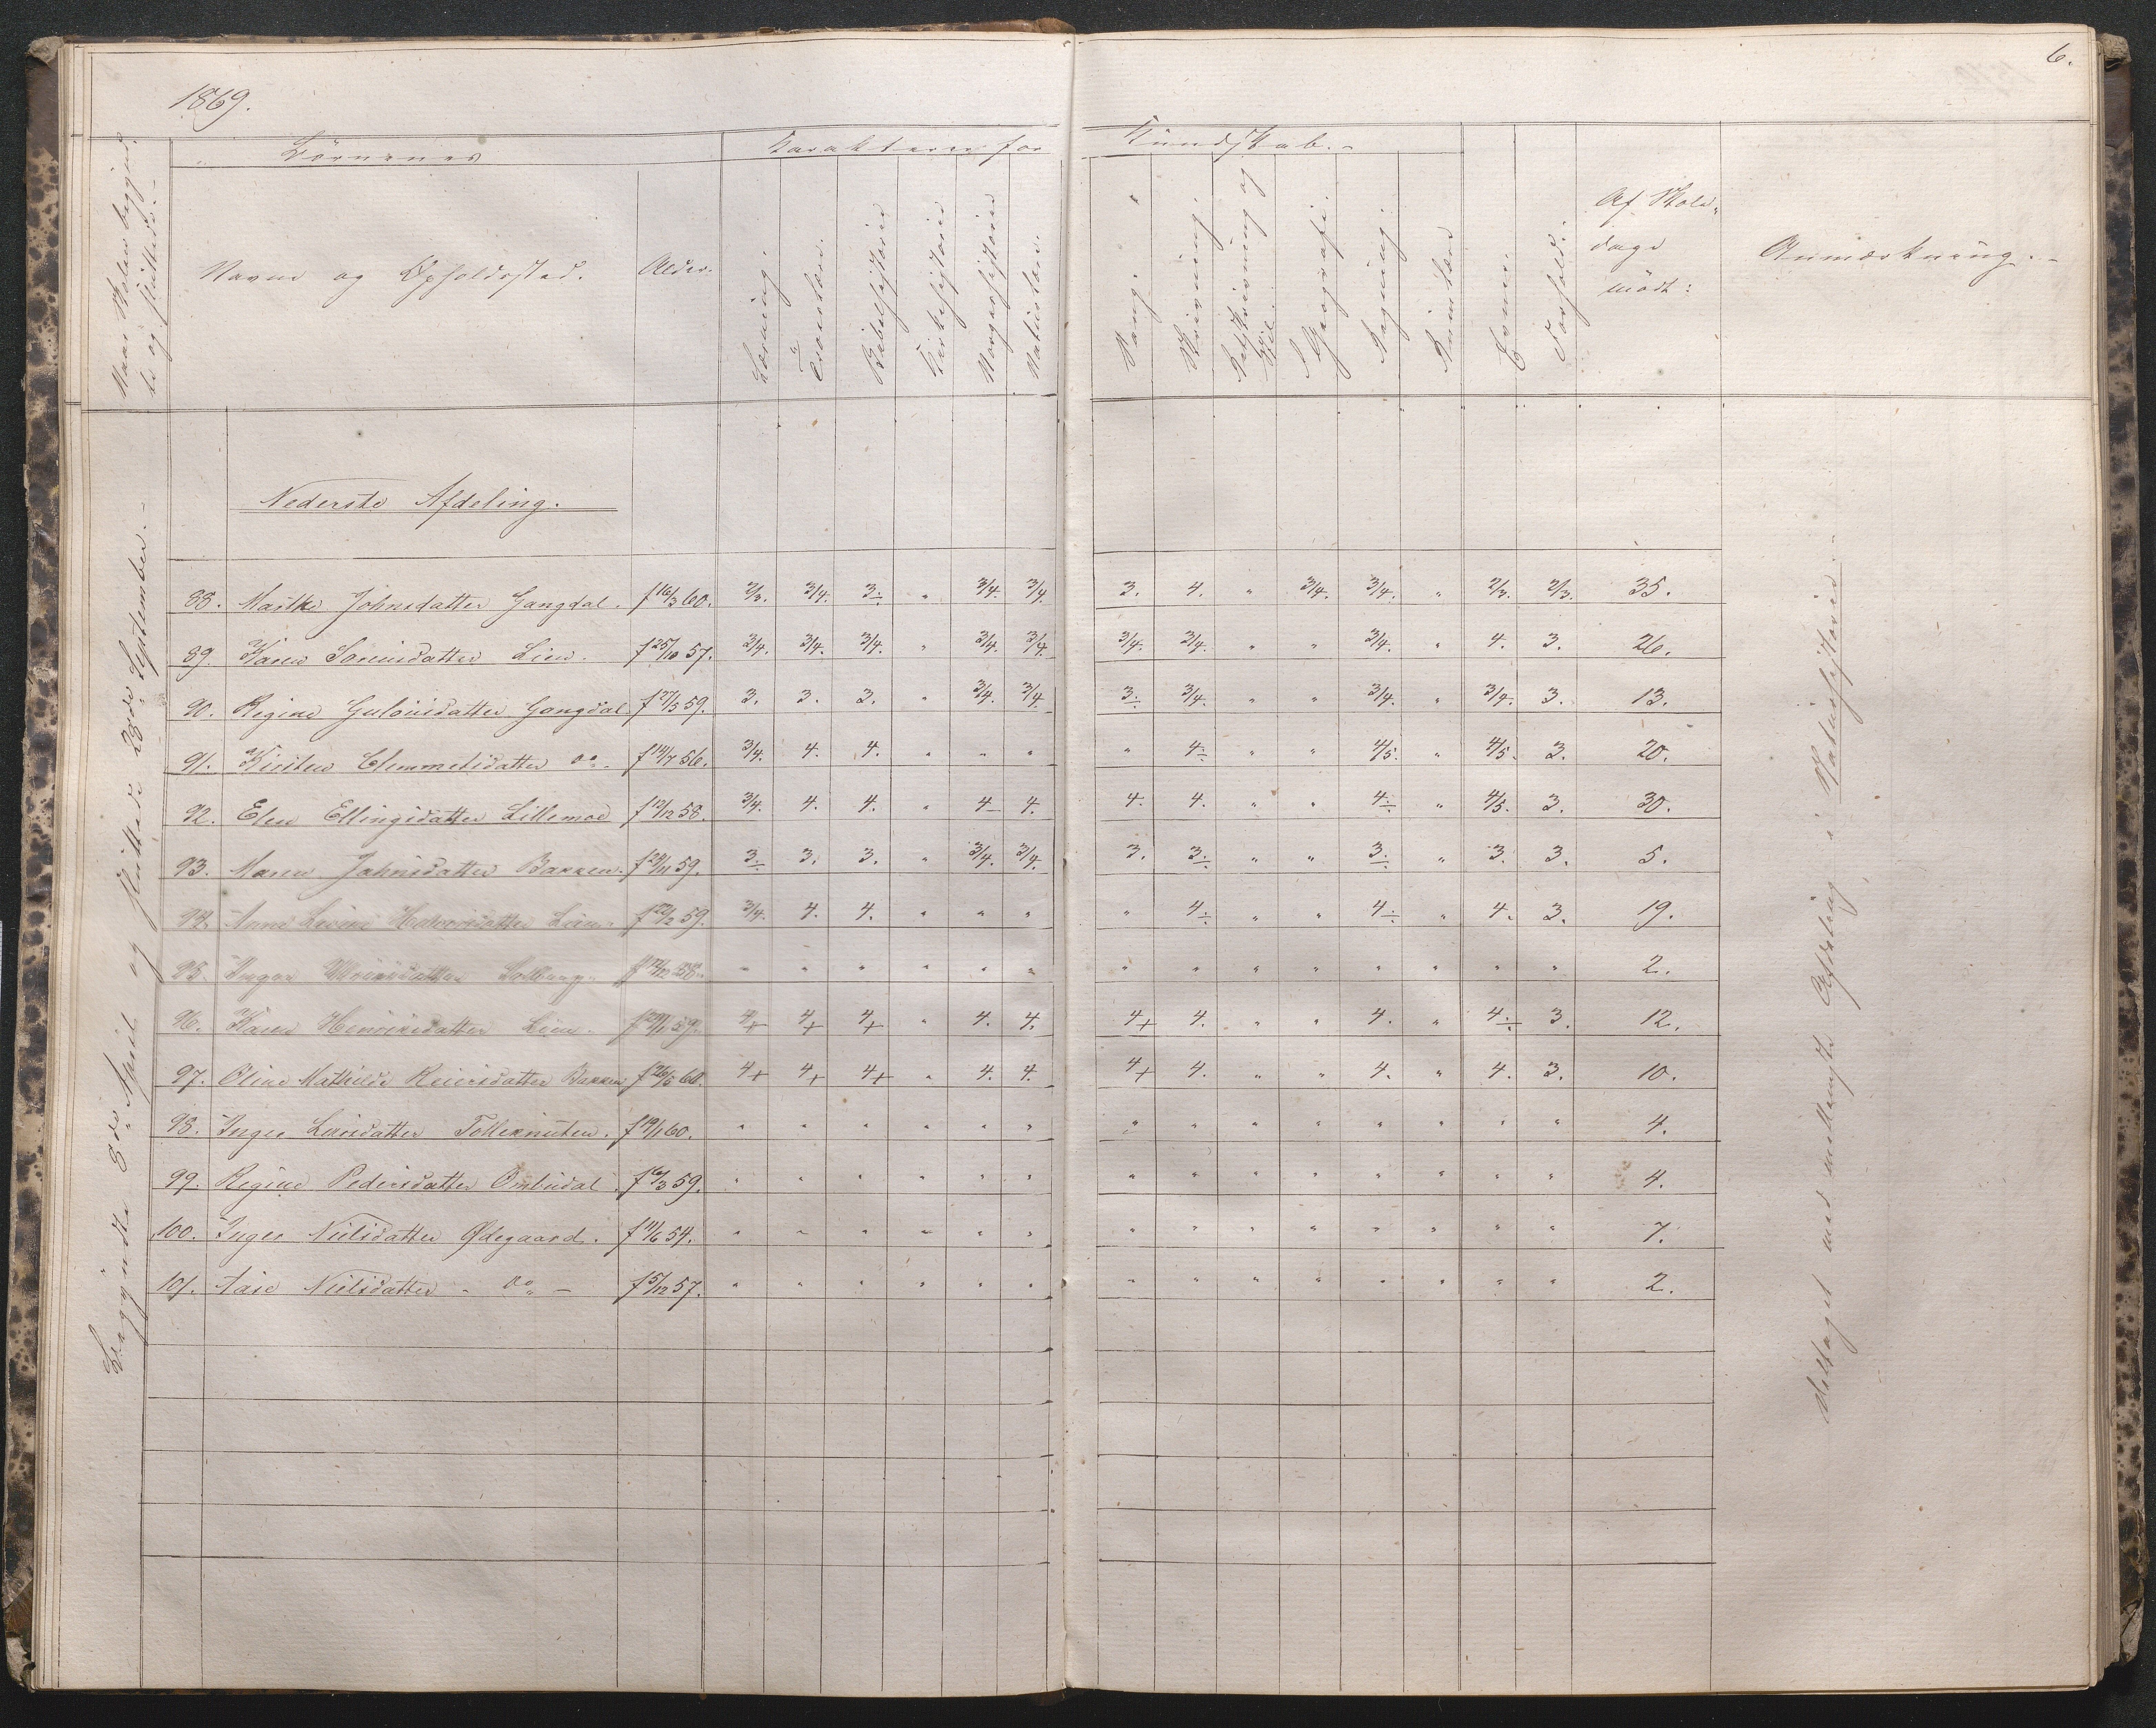 6.
1869.
Naar Skolen begynd-
te og sluttede.-
Börnenes
Karakterer for
Kundskab.-
Navne og Opholdssted.
Alder.
Læsning.
Troeslære.
Bibelhistorie
Kirkehistorie
Norgeshistorie
Naturlære.
Sang.
Skrivning.
Retskrivning og
Geografi.
Regning.
Evner.
Forhold.
Af Skole-
dage
mödt:
Anmærkning.-
Nederste Afdeling.
Begyndte 8de April og sluttede 28de September.-
88. Marthe Johnsdatter Gangdal. f 16/3 60. 2/3. 3/4. 3÷ " 3/4. 3/4. 3. 4. " 3/4. 3/4. " 2/3. 2/3. 35.
89. Karen Sørensdatter Lien. f 25/10 57. 3/4. 3/4. 3/4. " 3/4. 3/4. 3/4. 3/4. " " 3/4. " 4. 3. 26.
90. Regine Gulovsdatter Gangdal. f 27/5 59. 3. 3. 3. " 3/4. 3/4. 3÷ 3/4. " " 3/4. " 3/4. 3. 13.
91. Kirsten Clemmetsdatter do. f 14/7 56. 3/4. 4. 4. " " " " 4÷ " " 4/5. " 4/5. 3. 20.
92. Elen Ellingsdatter Lillemoe f 12/12 58. 3/4. 4. 4. " 4- 4. 4. 4. " " 4÷ " 4/5. 3. 30.
93. Maren Jahnsdatter Bakken. f 29/11 59. 3÷ 3. 3. " 3/4. 3/4. 3. 3÷ " " 3÷ " 3. 3. 5.
94. Anne Lovise Halvorsdatter Lien. f 22/2 59. 3/4. 4. 4. " " " " 4÷ " " 4÷ " 4. 3. 19.
95. " " " " " " " " " " " " " " 2.
96. Karen Henriksdatter Lien. f 29/1 59. 4+ 4+ 4+ " 4. 4. 4+ 4. " " 4. " 4÷ 3. 12.
97. Oline Mathilde Reiersdatter Bakken f 26/5 60. 4+ 4+ 4+ " 4. 4. 4+ 4. " " 4. " 4. 3. 10.
98. Inger Larsdatter Tolleknuten. f 19/1 60. " " " " " " " " " " " " " " 4.
99. Regine Pedersdatter Ombudal. f 16/3 59. " " " " " " " " " " " " " " 4.
100. Inger Nielsdatter Ødegaard. f 11/6 54. " " " " " " " " " " " " " " 7.
101. Aase Nielsdatter - do - f 5/12 57. " " " " " " " " " " " " " " 2.